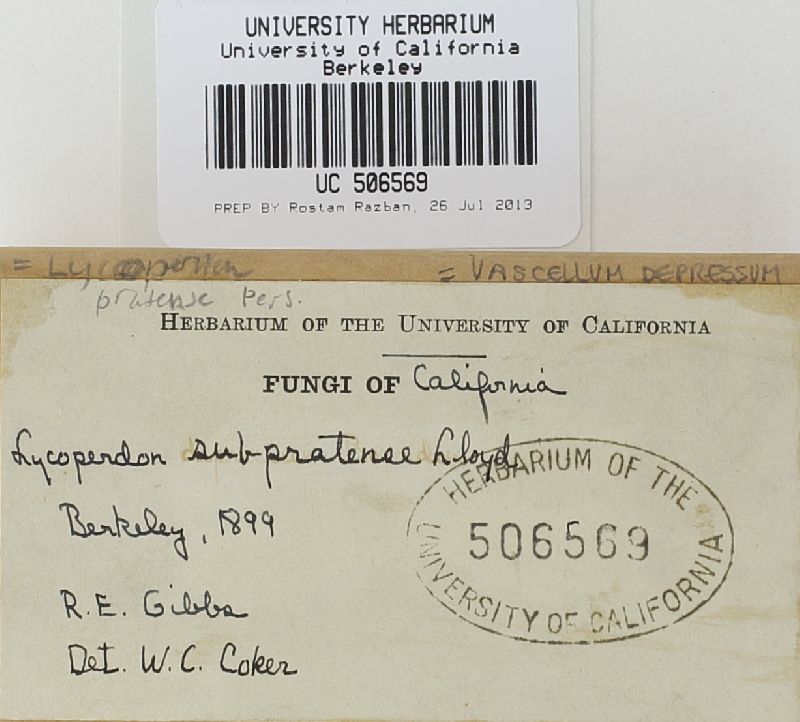 UNIVERSITY HERBARIUM
University of California
Berkeley
UC 506569
PREP BY Rostam Razban, 26 Jul 2013
= Lycoperdon = VASCELLUM DEPRESSUM
pratense Pers.
HERBARIUM OF THE UNIVERSITY OF CALIFORNIA
FUNGI OF California
Lycoperdon subpratense Lloyd
HERBARIUM OF THE
506569
UNIVERSITY OF CALIFORNIA
Berkeley, 1899
R.E. Gibbs
Det. W.C. Coker